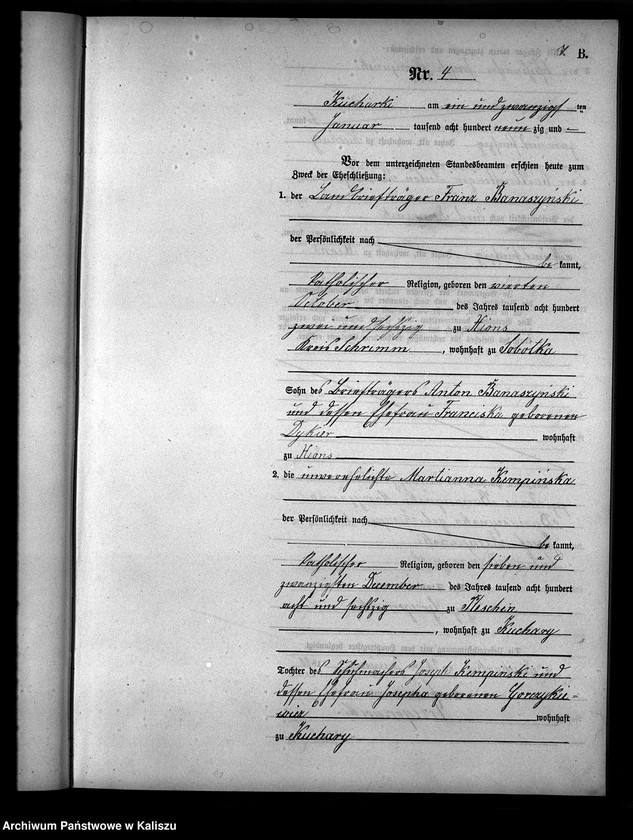 7 B.
Nr. 4
Kucharki am ein und zwanzigsten
Januar tausend acht hundert neunzig und
Vor dem unterzeichneten Standesbeamten erschien heute zum
Zweck der Eheschließung:
1. der Landbriefträger Franz Banaszyński
der Persönlichkeit nach
be kannt,
katholischer Religion, geboren den vierten
October des Jahres tausend acht hundert
zwei und sechszig zu Xions
Kreis Schrimm, wohnhaft zu Sobotka
Sohn des Briefträgers Anton Banaszyński
und dessen Ehefrau Franciska geborenen
wohnhaft
zu Xions
2. die unverehelichte Marianna Kempińska
der Persönlichkeit nach
be kannt,
katholischer Religion, geboren den sieben und
zwanzigsten December des Jahres tausend acht hundert
acht und sechszig zu Pleschen
, wohnhaft zu Kuchary
Tochter des Schuhmachers Joseph Kempiński und
dessen Ehefrau Josepha geborenen Gorczykie-
wicz wohnhaft
zu Kuchary
Archiwum Państwowe w Kaliszu